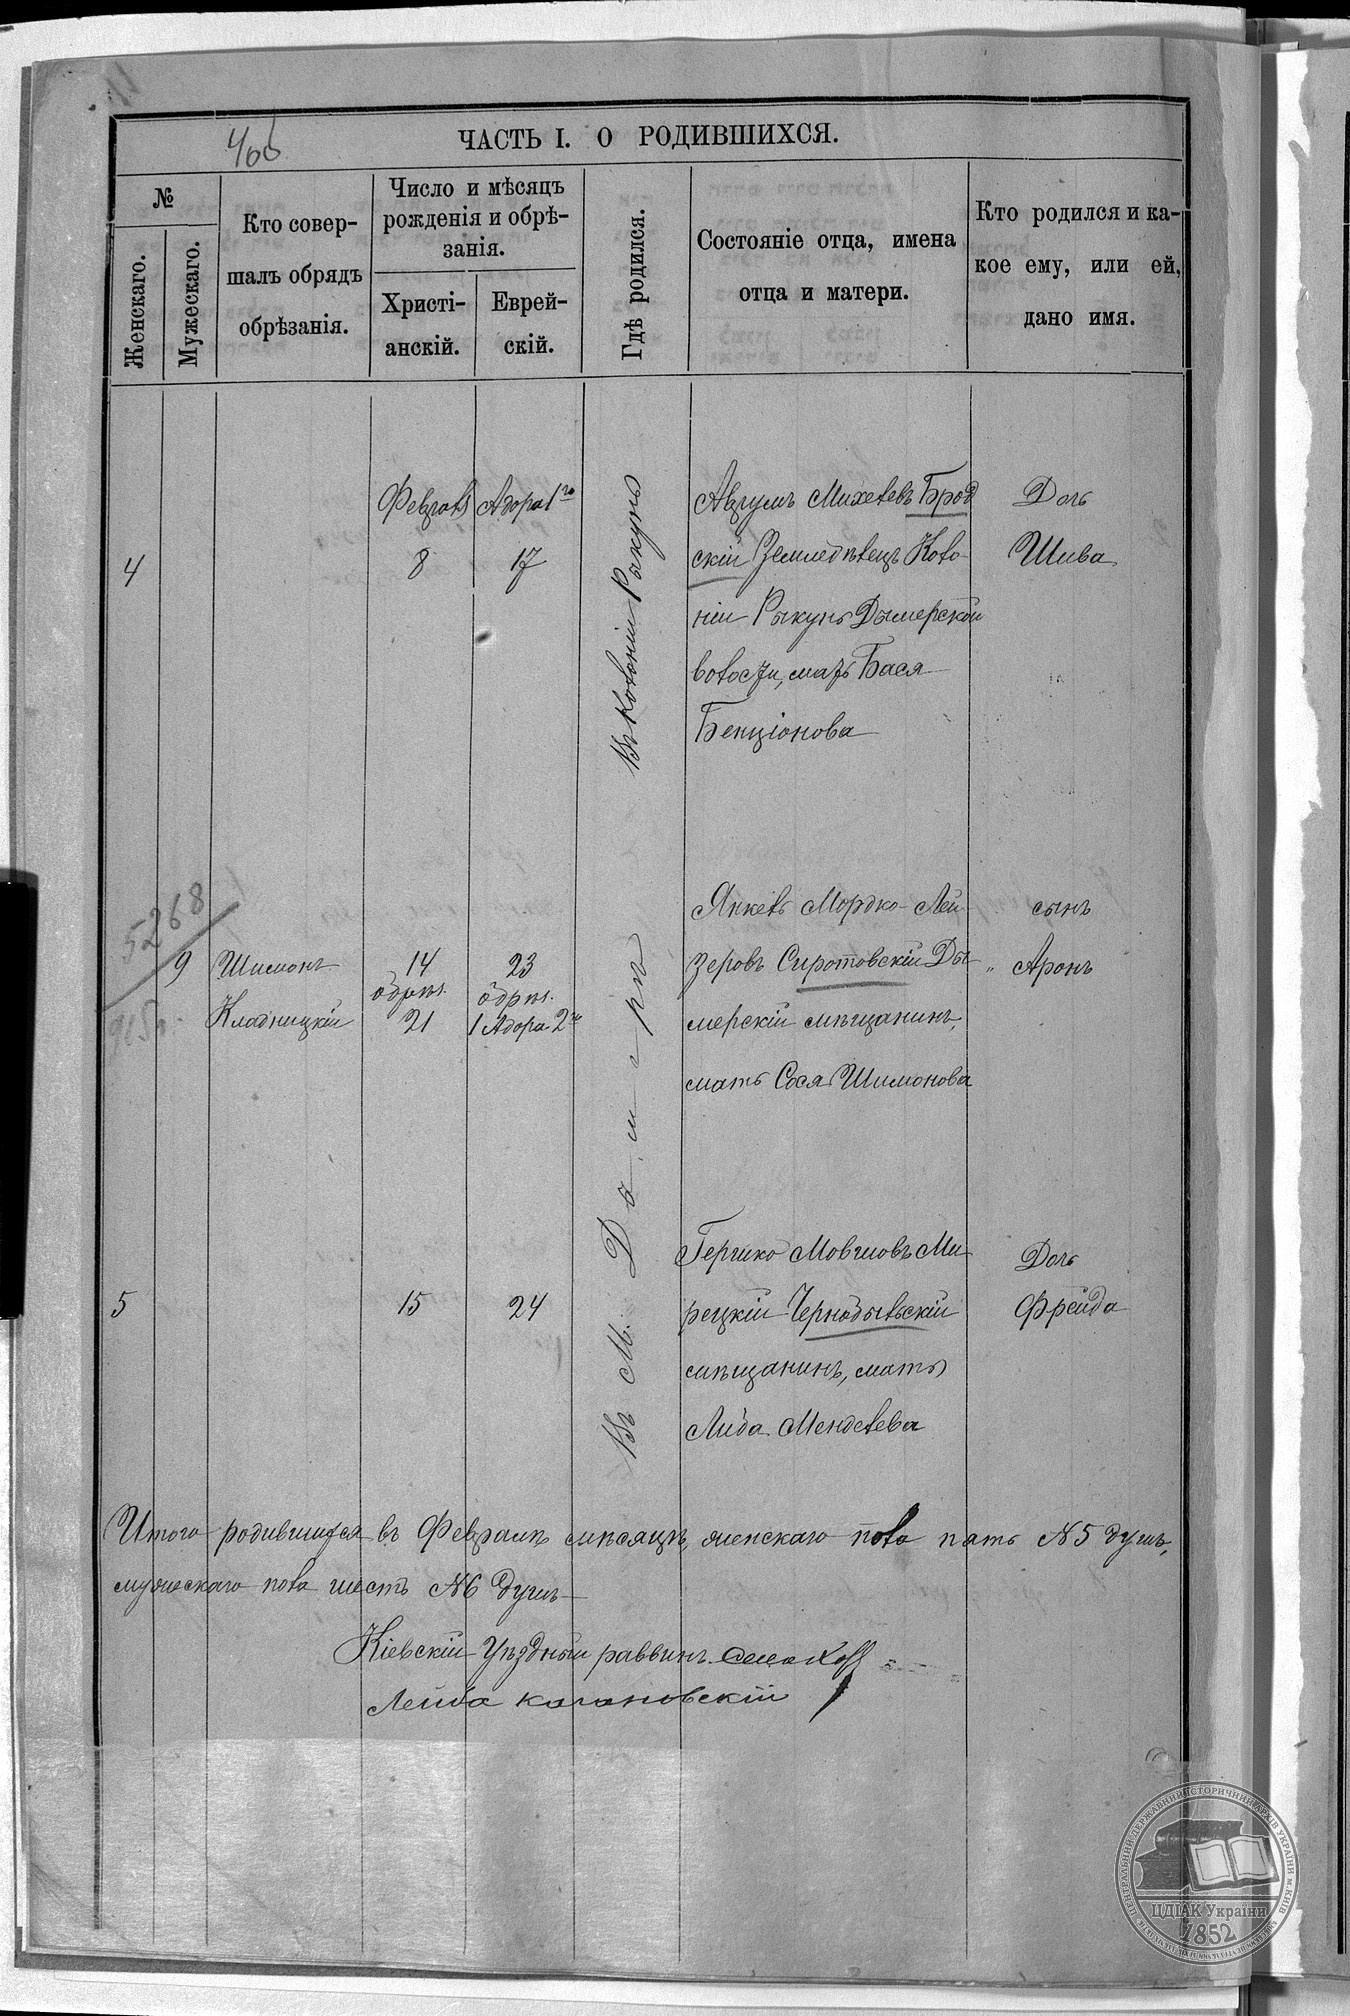 406
ЧАСТЬ I. О РОДИВШИХСЯ.
№
Женскаго.
Мужескаго.
Кто совер-
шалъ обрядъ
обрѣзанія.
Число и мѣсяцъ
рожденія и обрѣ-
занія.
Христі-
анскій.
Еврей-
скій.
Гдѣ родился.
Состояніе отца, имена
отца и матери.
Кто родился и ка-
кое ему, или ей,
дано имя.
4
Февраля
8
Адора 1го
17
Въ Колоніи Рыкунь
Михелевъ Брод
скій Земледѣлецъ Коло-
ніи Рыкунь Дымерской
волости, мать Бася
Бенціонова
Дочь
Шива
5268
915г.
9
Шимонъ
Кладницкій
14
обрѣз.
21
23
обрѣз.
1 Адора 2го
Въ М. Дымерѣ
Янкель Мордко-Лей
зеровъ Сиротовскій Ды-
мерскій мѣщанинъ,
мать Сося Шимонова
сынъ
Аронъ
5
15
24
Гершко Мовшовъ Ми
рецкій Чернобыльскій
мѣщанинъ, мать
Либа Менделева
Дочь
Фрейда
Итого родившихся въ Февралѣ мѣсяцѣ, женскаго пола пять №5 душъ,
мужескаго пола шесть №6 душъ
Кіевскій Уѣздный раввинъ
Лейба Кагановскій
ЦЕНТРАЛЬНИЙ ДЕРЖАВНИЙ ІСТОРИЧНИЙ АРХІВ УКРАЇНИ м. КИЇВ
ЦДІАК України
1852